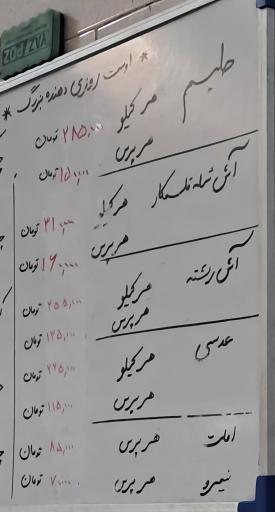 * اوست روزی دهنده بزرگ *
حلیم هر کیلو ۲۸۵,۰۰۰ تومان
هر پرس ۱۵۰,۰۰۰ تومان
آش شله قلمکار هر کیلو تومان
هر پرس ۱۶۰,۰۰۰ تومان
آش رشته هر کیلو ۲۵۵,۰۰۰ تومان
هر پرس ۱۲۵,۰۰۰ تومان
عدسی هر کیلو ۲۲۵,۰۰۰ تومان
هر پرس ۱۱۵,۰۰۰ تومان
املت هر پرس ۸۵,۰۰۰ تومان
نیمرو هر پرس ۷۰,۰۰۰ تومان